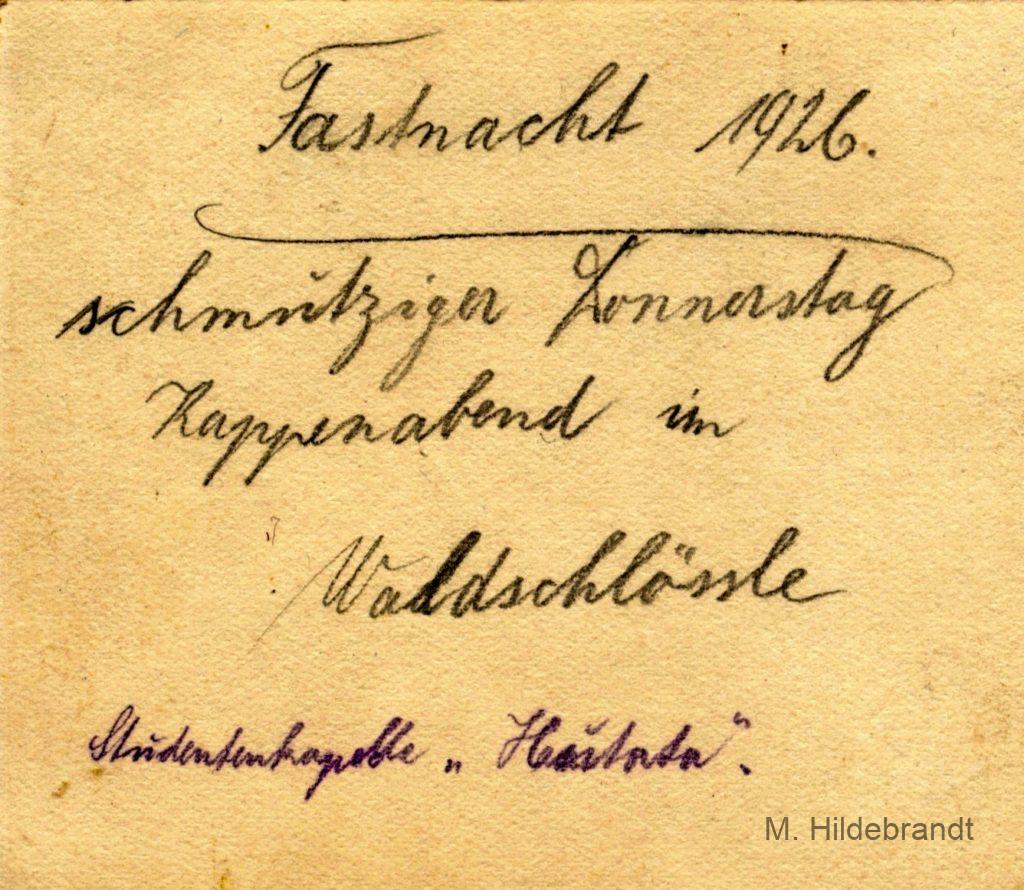 Fastnacht 1926.
schmutziger Donnerstag
Kappenabend im
Waldschlössle
Studentenkapelle
M. Hildebrandt